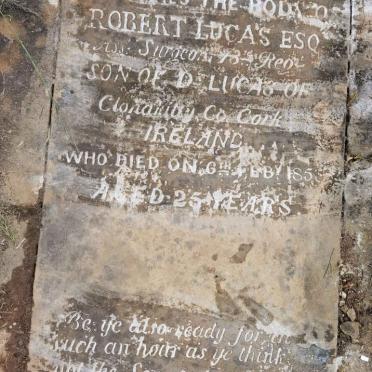 THE BODY O
ROBERT LUCAS ESQ
Ass. Surgeon 73rd Reg.
SON OF Dr LUCAS OF
Clonakilty Co. Cork
IRELAND
WHO DIED ON 6TH FEBY 185
AGED 25 YEARS
Be ye also ready for in
such an hour as ye think
not the